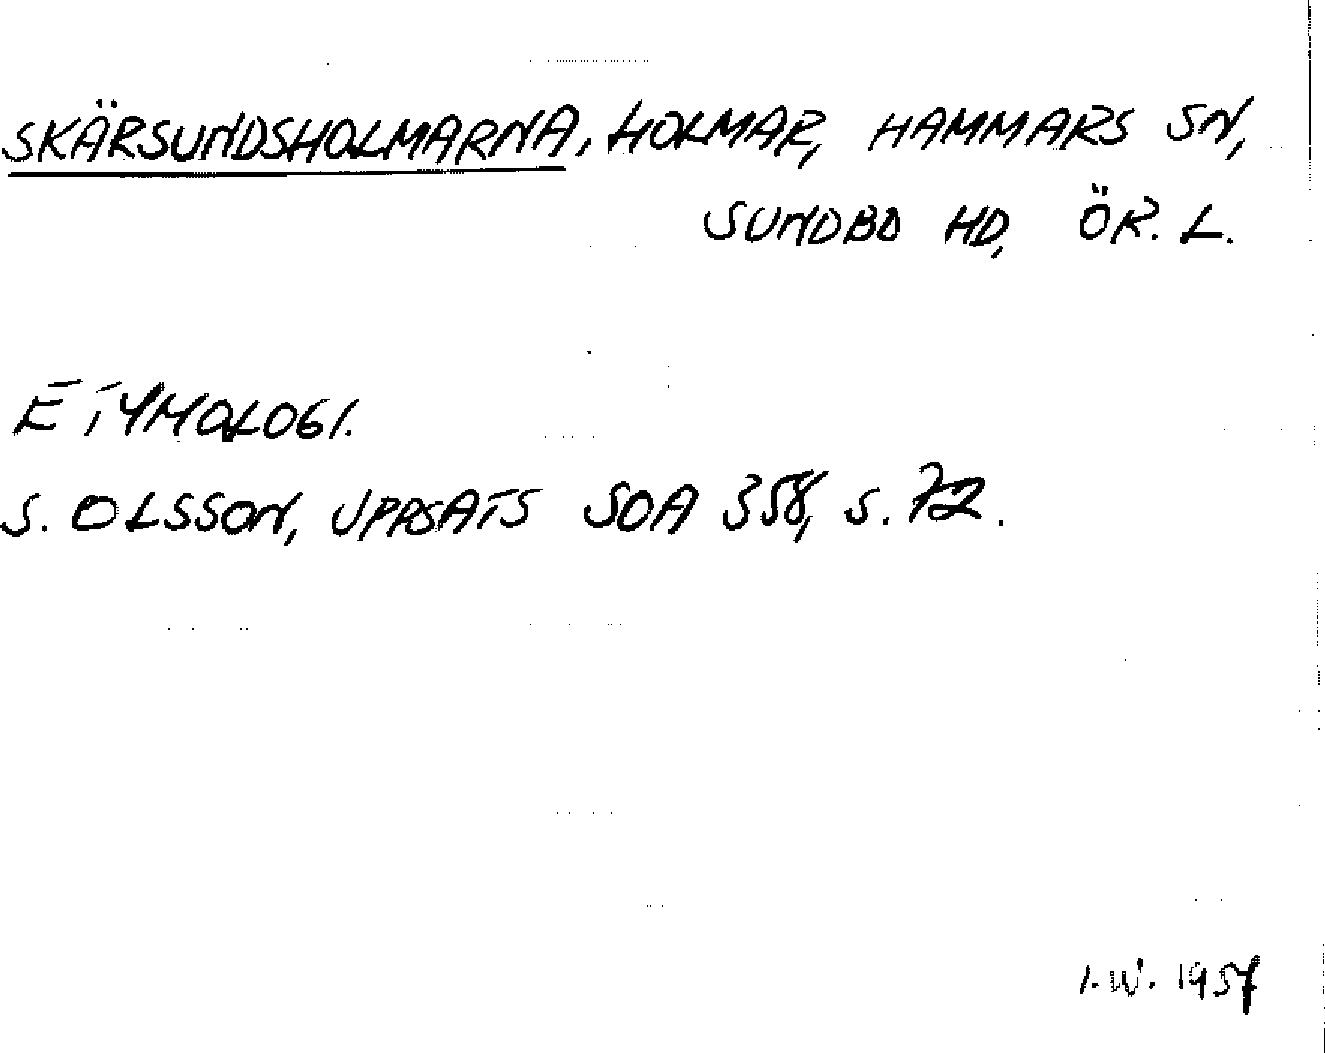 SKÄRSUNDSHOLMARNA, HOLMAR, HAMMARS SN,
SUNDBO HD, ÖR. L.
ETYMOLOGI.
S. OLSSON, UPPSATS SOA 358, S. 72.
I.W. 1957